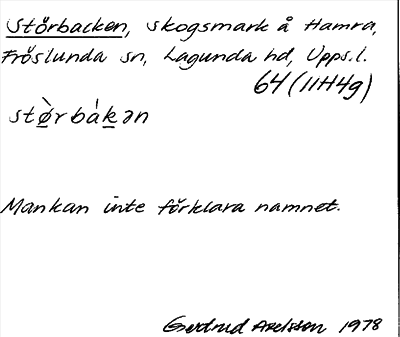 Störbacken, skogsmark å Hamra,
Fröslunda sn, Lagunda hd, Upps.l.
64 (11H4g)
stø̀rbák̲ən
Man kan inte förklara namnet.
Gertrud Axelsson 1978